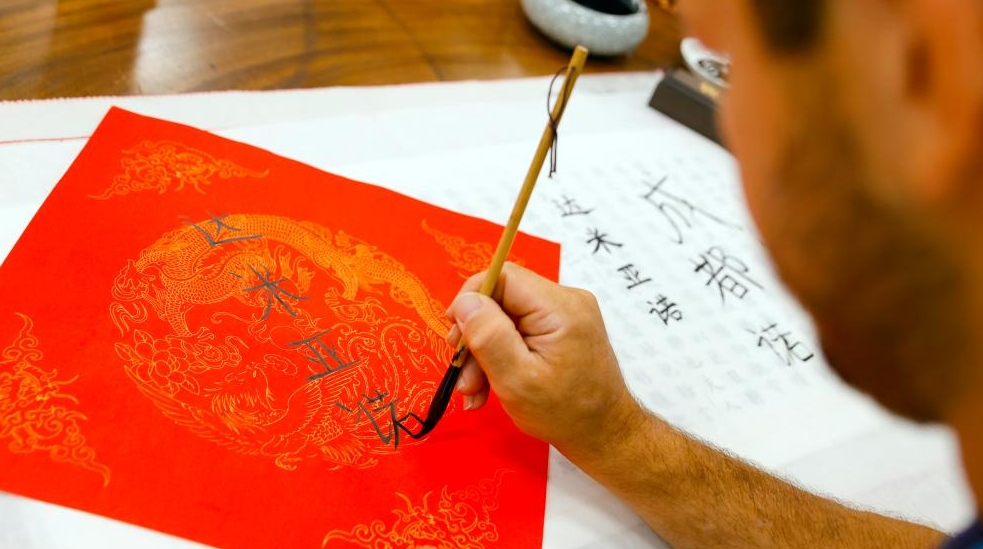 达米亚诺
达米亚诺
成都诺